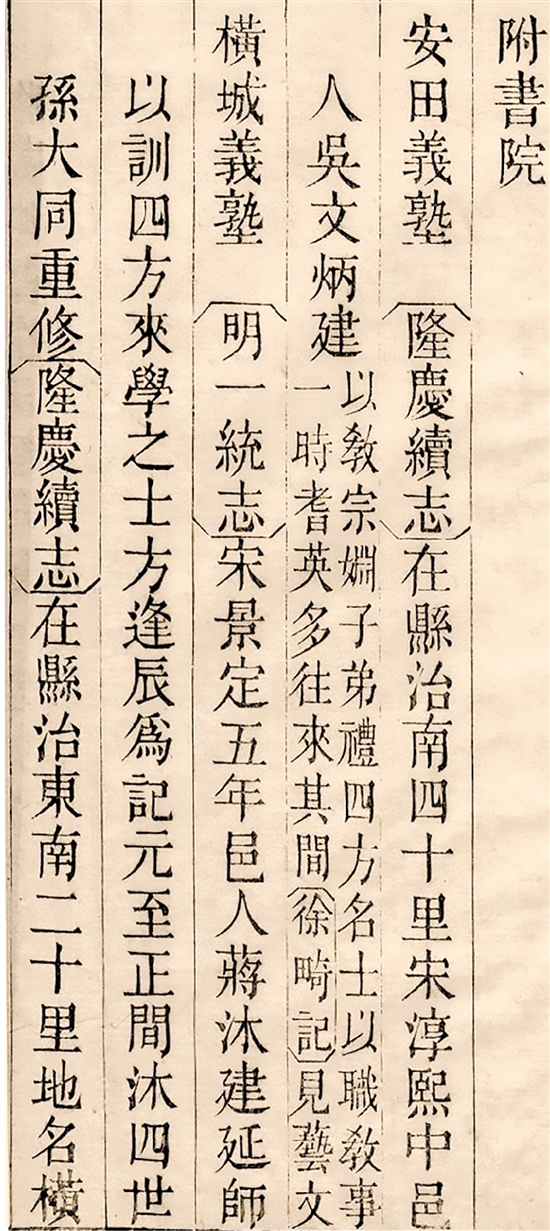 附書院
安田義塾 隆慶續志在縣治南四十里宋淳熙中邑
人吳文炳建以教宗婣子弟禮四方名士以職教事
一時耆英多往來其間徐畸記見藝文
橫城義塾 明一統志宋景定五年邑人蔣沐建延師
以訓四方來學之士方逢辰爲記元至正間沐四世
孫大同重修隆慶續志在縣治東南二十里地名橫